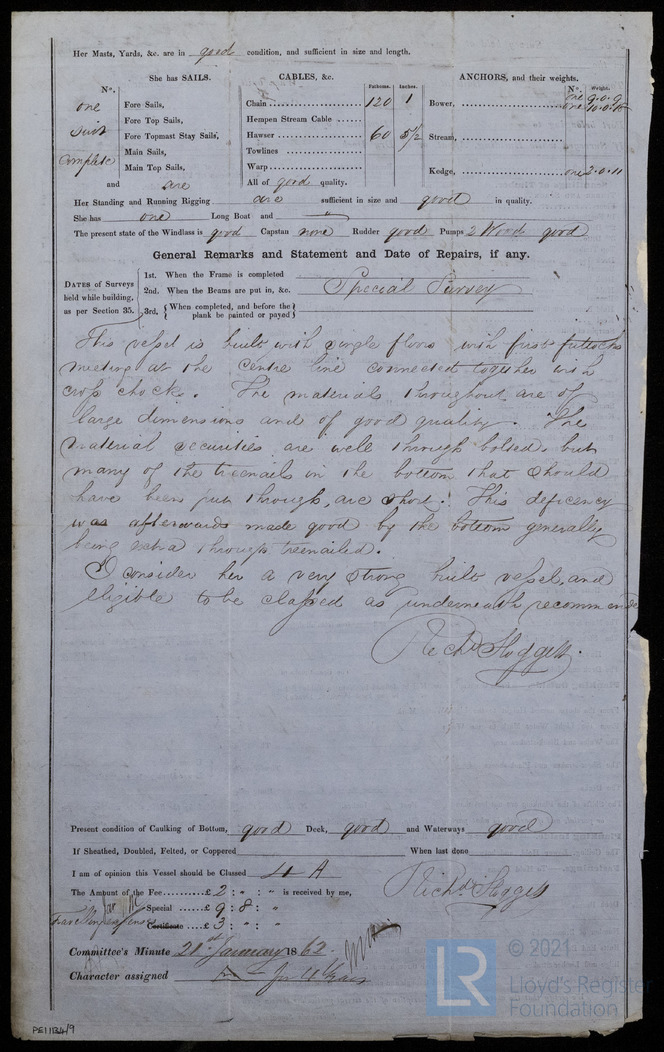 Her Masts, Yards, &c. are in good condition, and sufficient in size and length.
She has SAILS. CABLES, &c. ANCHORS, and their weights.
Nº. Fathoms. Inches. Nº. Weight.
one Fore Sails, Chain 120 1 Bower, one 9.0.9
one 10.0.15
Suit Fore Top Sails, Hempen Stream Cable
Fore Topmast Stay Sails, Hawser 60 5½ Stream,
Complete Main Sails, Towlines
Main Top Sails, Warp Kedge, one 2.0.11
and are All of good quality.
Her Standing and Running Rigging are sufficient in size and good in quality.
She has one Long Boat and
The present state of the Windlass is good Capstan none Rudder good Pumps 2 Wood good
General Remarks and Statement and Date of Repairs, if any.
DATES of Surveys held while building, as per Section 35.
1st. When the Frame is completed
2nd. When the Beams are put in, &c. Special Survey
3rd. {When completed, and before the plank be painted or payed}
This vessel is built with single floors with first futtocks
meeting at the centre line connected together with
cross chocks. The materials throughout are of
large dimensions and of good quality. The
material securities are well through bolted, but
many of the treenails in the bottom that should
have been put through, are short. This deficency
was afterwards made good by the bottom generally
being extra through treenailed.
I consider her a very strong built vessel, and
eligible to be classed as underneath recommended
Richd
Present condition of Caulking of Bottom, good Deck, good and Waterways good
If Sheathed, Doubled, Felted, or Coppered When last done
I am of opinion this Vessel should be Classed 4 A
The Amount of the Fee £ 2 : " : " is received by me,
Special £ 9 : 8 : "
Certificate £ 3 : " : "
Richd
Committee's Minute 21st January 1862
Character assigned for 4 Years
PE11134/9
© 2021
LR
Lloyd's Register
Foundation